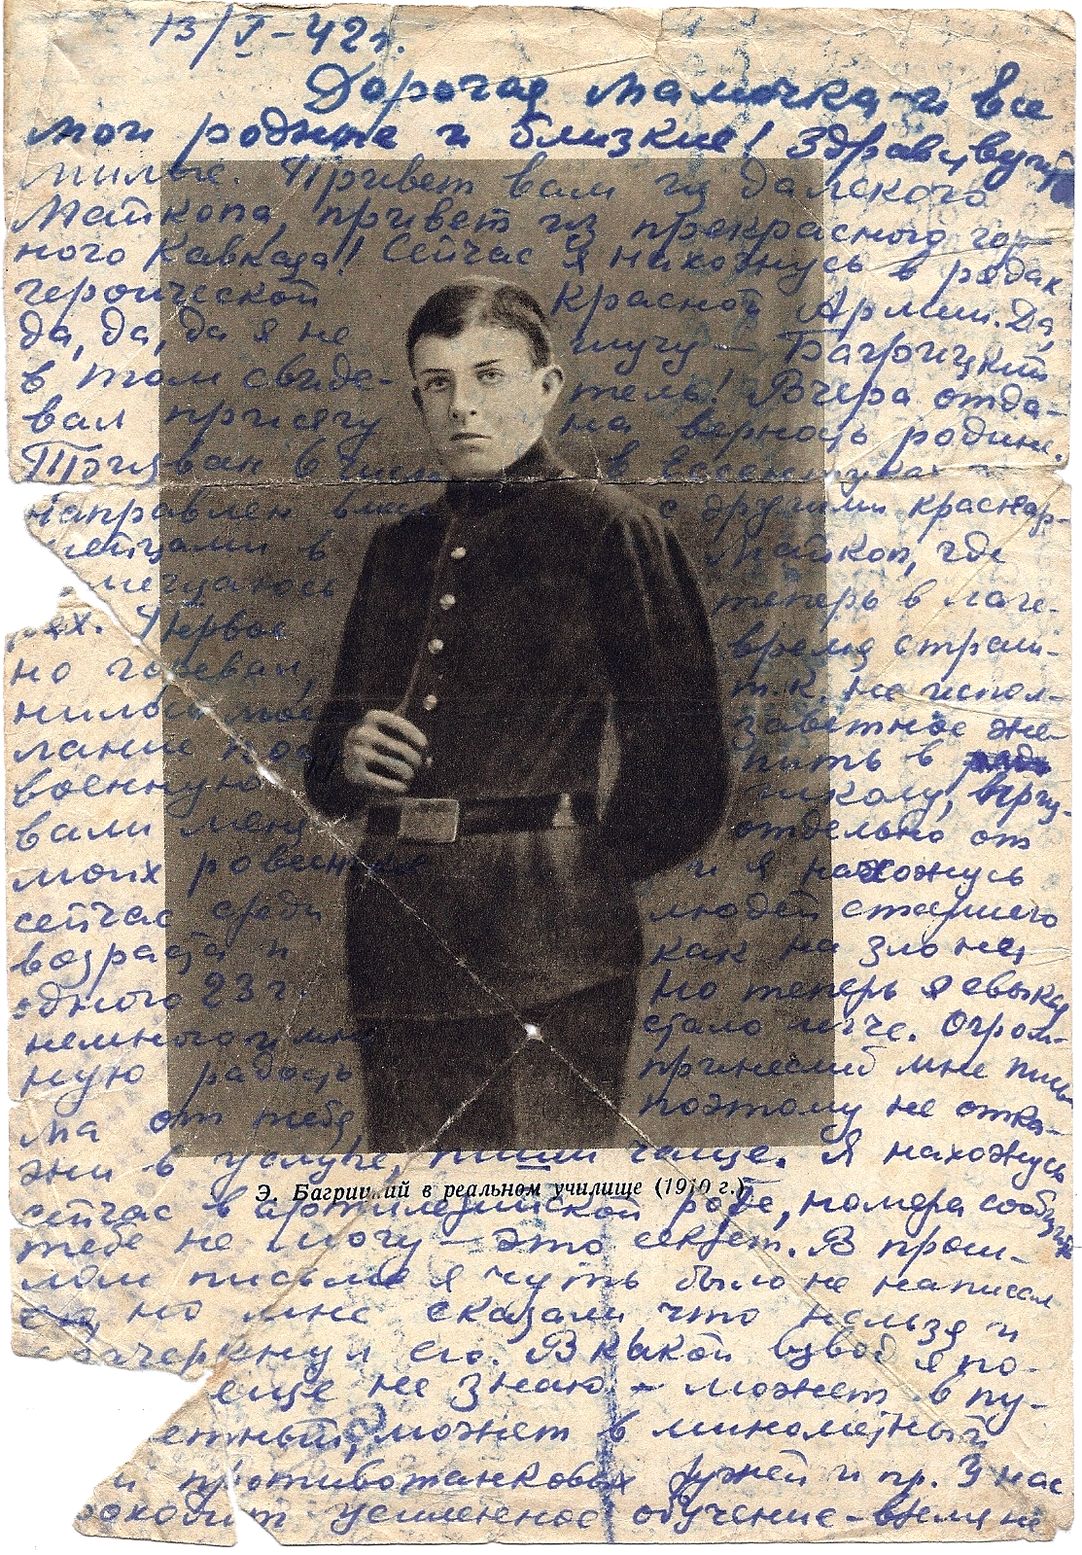 13/I-42 г.
Дорогая мамочка и все
мои родные и близкие! Здравствуйте
милые. Привет вам из далекого
Майкопа, привет из прекрасного гор-
ного Кавказа! Сейчас я нахожусь в рядах
героической Красной Армии. Да,
да, да, да я не шучу — Багрицкий
в том свиде- тель! Вчера отда-
вал присягу на верность родине.
Призван в Ессентуках
направлен с другими красноар-
мейцами в Майкоп, где
теперь в лаге-
рях. Первое время страш-
но горевал, т.к. не испол-
нилось мое заветное же-
лание пить в
военную школу, приз-
вали меня отдельно от
моих ровесников и я нахожусь
сейчас среди людей старшего
возраста и как на зло нет
одного 23 г. Но теперь я свыкся
немного и мне стало легче. Огром-
ную радость принесли мне пись-
ма от тебя поэтому не отка-
жи в услуге, пиши чаще. Я нахожусь
Э. Багрицкий в реальном училище (1910 г.)
сейчас в артиллерийской роте, номера сообщить
тебе не могу — это секрет. В прош-
лом письме я чуть было не написал
его, но мне сказали что нельзя и
зачеркнул его. В какой взвод я по-
еще не знаю — может в пу-
может в минометный
и противотанковых ружей и пр. У нас
проходит усиленное обучение — время не